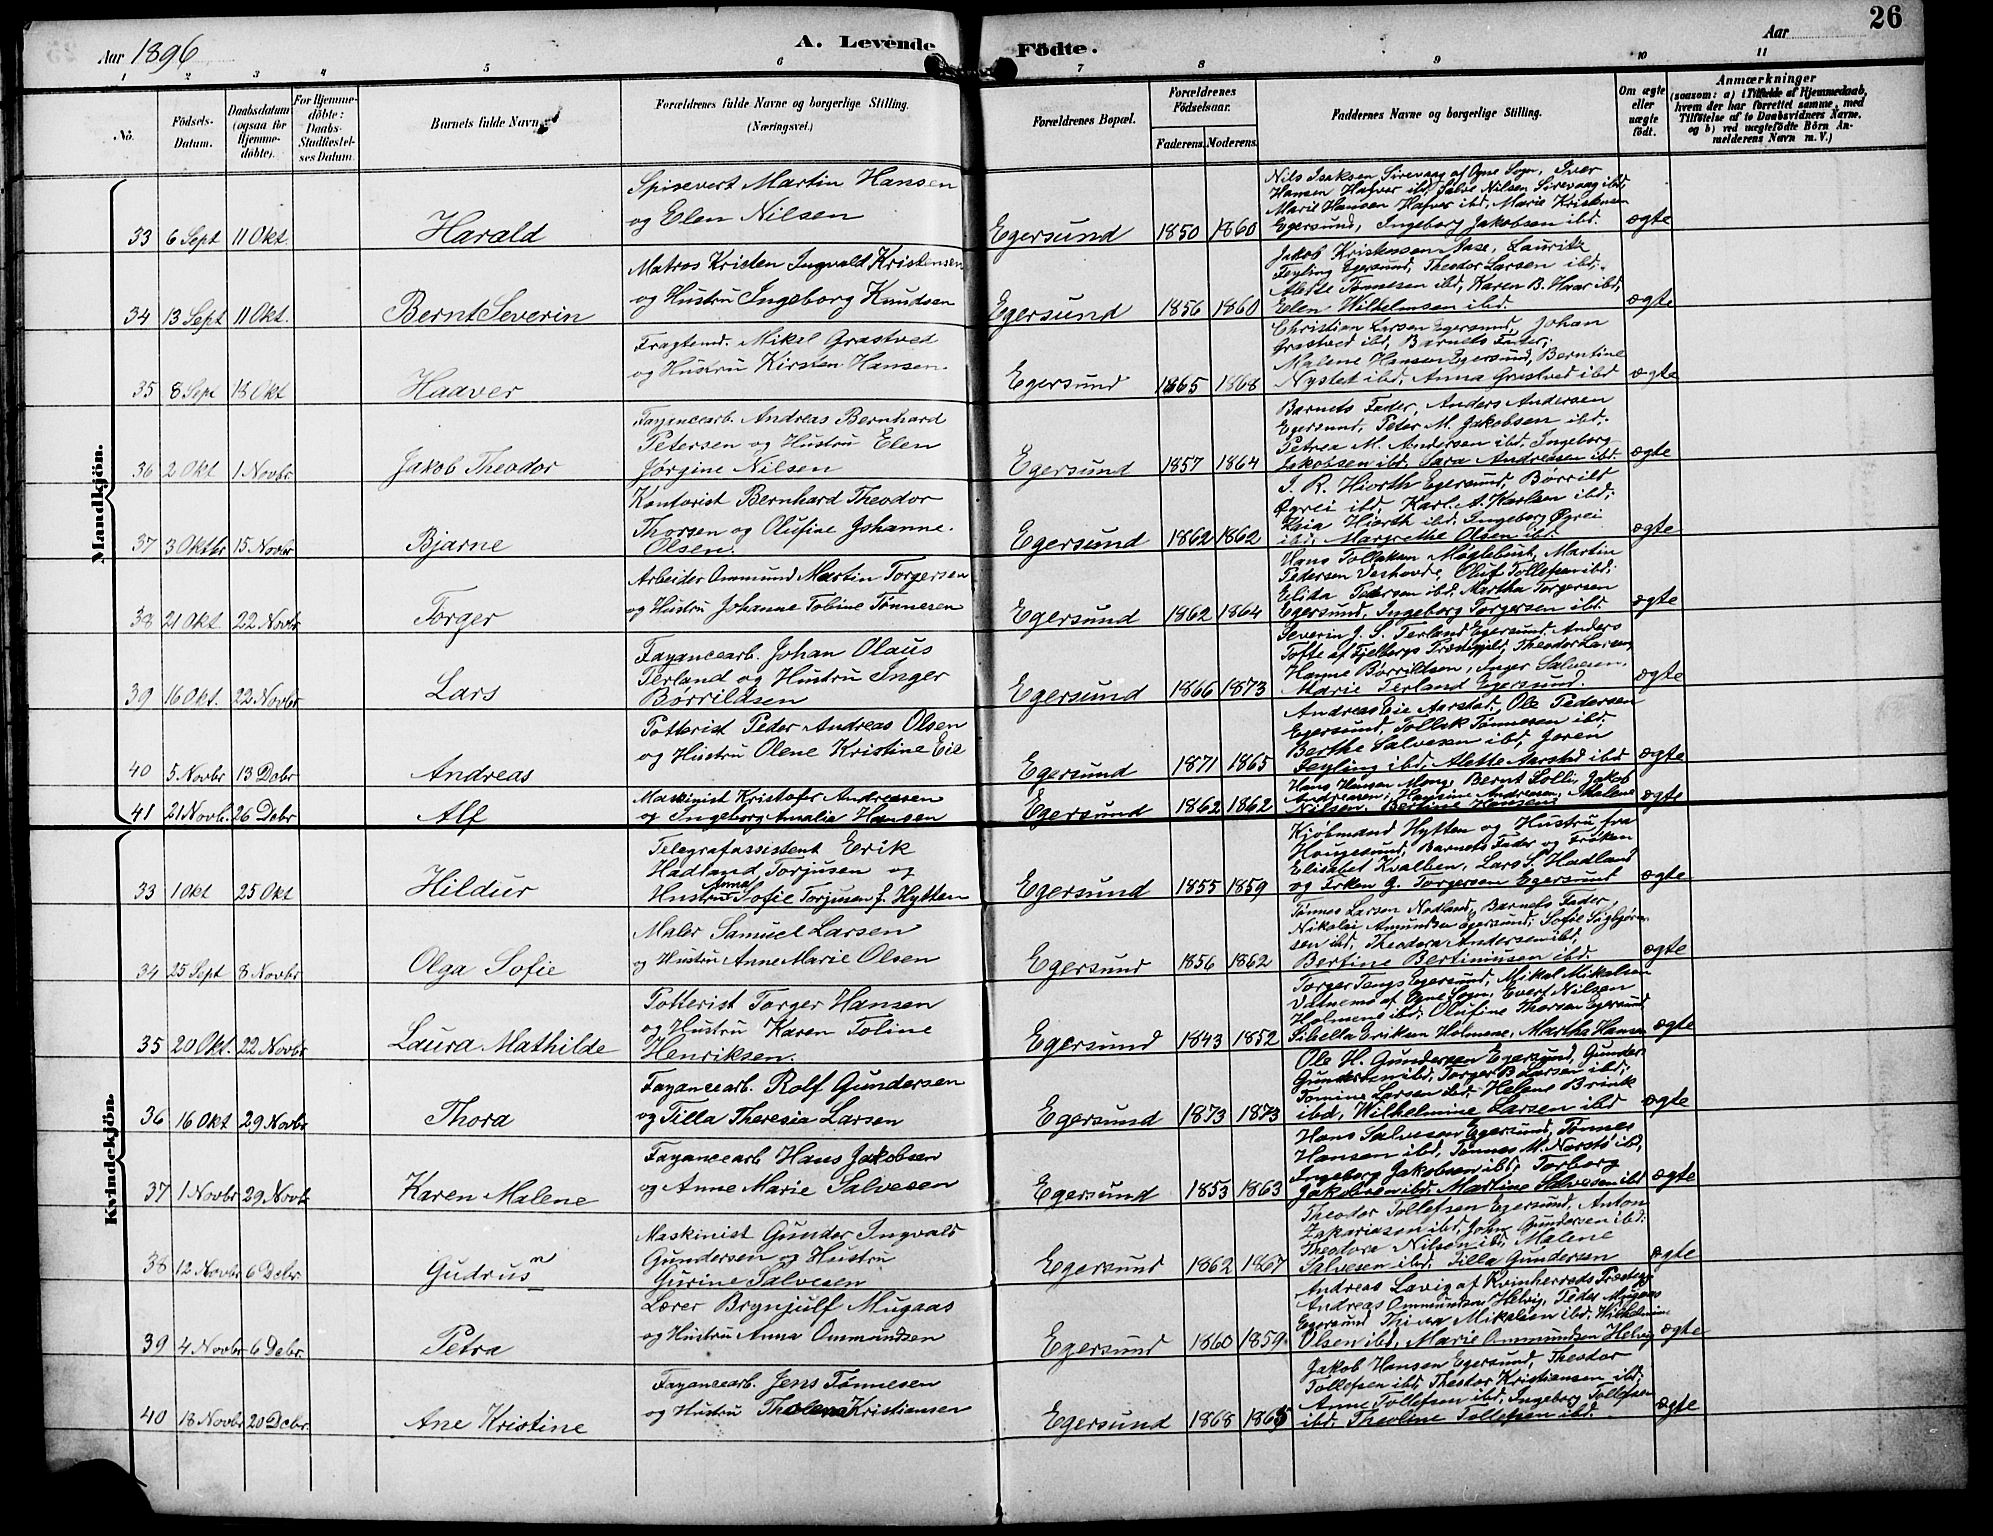 26
Aar 1896
A. Levende Födte.
Aar
1 2 3 4 5 6 7 8 9 10 11
No.
Födsels-
Datum.
Daabsdatum
(ogsaa for
Hjemme-
döbte).
For Hjemme-
döbte:
Daabs-
Stadfæstel-
ses Datum.
Barnets fulde Navn
Forældrenes fulde Navne og borgerlige Stilling.
(Næringsvei.)
Forældrenes Bopæl.
Forældrenes
Födselsaar.
Faderens. Moderens.
Faddernes Navne og borgerlige Stilling.
Om ægte
eller
uægte
födt.
Anmærkninger
(saasom: a) i Tilfælde af Hjemmedaab,
hvem der har forrettet samme, med
Tilföielse af to Daabsvidners Navne,
og b) ved uægtefödte Börn An-
melderens Navn m. V.)
Mandkjön.
33 6 Sept 11 Okt Harald
Spisevert Martin Hansen
og Elen Nilsen
Egersund 1850 1860
Nils Isaksen Sirevaag af Ogne Sogn, Iver
Hansen Hafver ibd, Sabie Nilsen Sirevaag ibd,
Marie Hansen Hafver ibd, Marie Kristensen
Egersund, Ingeborg Jakobsen ibd.
ægte
34 13 Sept 11 Okt. Bernt Severin
Matros Kristen Ingvald Kristensen
og Hustru Ingeborg Knudsen
Egersund 1856 1860
Jakob Kristensen Aase, Lauritz
Feyling Egersund, Theodor Larsen ibd,
Alette Tønnesen ibd, Karen B. Haar ibd,
Elen Wilhelmsen ibd.
ægte
35 8 Sept 18 Okt Haaver
Fragtemd. Mikal Grastved
og Hustru Kirsten Hansen.
Egersund 1865 1868
Christian Larsen Egersund, Johan
Grastved ibd, Barnets Fader,
Malene Hansen Egersund, Berntine
Nystet ibd, Anna Grastved ibd
ægte
36 2 Okt 1 Novbr. Jakob Theodor
Fayancearb. Andreas Bernhard
Petersen og Hustru Elen
Jørgine Nilsen
Egersund 1857 1864
Barnets Fader, Anders Andersen
Egersund, Peter M. Jakobsen ibd,
Petrea M. Andersen ibd, Ingeborg
Jakobsen ibd, Sara Andreasen ibd.
ægte
37 3 Oktbr 15 Novbr Bjarne
Kontorist Bernhard Theodor
Thorsen og Olufine Johanne
Olsen.
Egersund 1862 1862
J. R. Hiorth Egersund, Børrild
Øgrei ibd, Karl. A. Karlsen ibd,
Kaia Hiorth ibd, Ingeborg Øgrei
ibd, Margrethe Olsen ibd.
ægte
38 21 Okt 22 Novbr Torger
Arbeider Ommund Martin Torgersen
og Hustru Johanne Tobine Tønnesen
Egersund 1862 1864
Hans Tollaksen Møglebust, Martin
Petersen Veshovde, Oluf Tollefsen ibd,
Elida Pedersen ibd, Martha Torgersen
Egersund, Ingeborg Torgersen ibd.
ægte
39 16 Okt. 22 Novbr Lars
Fayancearb. Johan Olaus
Terland og Hustru Inger
Børrildsen
Egersund 1866 1873
Severin J. S. Terland Egersund, Anders
Tofte af Fjelbergs Præstegjeld, Theodor Larsen
Hanne Børrildsen, Inger Salvesen,
Marie Terland Egersund.
ægte
40 5 Novbr 13 Debr Andreas
Potterist Peder Andreas Olsen
og Hustru Olene Kristine Eie
Egersund 1871 1865
Andreas Eie Aarstad, Ole Pedersen
Egersund, Tollak Tønnesen ibd.
Berthe Salvesen ibd, Joren
Feyling ibd, Alette Aarstad ibd
ægte
41 21 Novb. 26 Debr Alf
Maskinist Kristofer Andreasen
og Ingeborg Amalia Hansen
Egersund 1862 1862
Hans Hansen Mong, Bernt Solli, Jakob
Andreasen, Andreasen, Malene
Nilsen, Bertine Hansen
ægte
Kvindekjön.
33 1 Okt 25 Okt Hildur
Telegrafassistent Erik
Hadland Torjusen og
Hustru Anna Sofie Torjusen f. Hytten
Egersund 1855 1859
Kjøbmand Hytten og Hustru fra
Haugesund, Barnets Fader og Frøken
Elisabet Kvalben, Lars S. Hadland
og Frken G. Torgersen Egersund
ægte
34 25 Sept 8 Novbr Olga Sofie
Maler Samuel Larsen
og Hustru Anne Marie Olsen
Egersund 1856 1862
Tønnes Larsen Nodland, Barnets Fader,
Nikolai Amundsen Egersund, Sofie Sigbjørn-
sen ibd, Theodora Andersen ibd,
Bertine Bertinussen ibd.
ægte
35 20 Okt. 22 Novbr Laura Mathilde
Potterist Torger Hansen
og Hustru Karen Toline
Henriksen.
Egersund 1843 1852
Torger Tengs Egersund, Mikal Mikalsen
Vatnemo af Ogne Sogn, Evert Nilsen
Holmene ibd, Olufine Thorsen Egersund
Sibella Eriksen Holmene, Martha Hansen
ægte
36 16 Okt 29 Novbr Thora
Fayancearb. Rolf Gundersen
og Tilla Theresia Larsen
Egersund 1873 1873
Ole H. Gundersen Egersund, Gunder
Gundersen ibd, Torger B Larsen ibd,
Tomine Larsen ibd, Helene Brink
ibd, Wilhelmine Larsen ibd
ægte
37 1 Novbr 29 Novb Karen Malene
Fayancearb Hans Jakobsen
og Anne Marie Salvesen
Egersund 1853 1863
Hans Salvesen Egersund, Tønnes
Hansen ibd, Tønnes M. Norstø ibd,
Ingeborg Jakobsen ibd, Torborg
Jakobsen ibd, Martine Salvesen ibd
ægte
38 12 Novbr 6 Debr. Gudrun
Maskinist Gunder Ingvald
Gundersen og Hustru
Gurine Salvesen
Egersund 1862 1867
Theodor Tollefsen Egersund, Anton
Zakariasen ibd, John Gundersen ibd.
Theodora Nilsen ibd, Malene
Salvesen ibd, Tilla Gundersen
ægte
39 4 Novbr 6 Debr. Petra
Lærer Brynjulf Mugaas
og Hustru Anna Ommundsen
Egersund 1860 1859
Andreas Lavig af Kvinherreds Præstegj
Andreas Ommundsen Helvig, Peder Mugaas
Egersund Thina Mikalsen ibd, Wilhelmine
Olsen ibd, Marie Ommundsen Helvig
ægte
40 18 Novbr 20 Debr. Ane Kristine
Fayancearb. Jens Tønnesen
og Hustru Kristiansen
Egersund 1868 1865
Jakob Hansen Egersund, Theodor
Tollefsen ibd, Theodor Kristiansen ibd.
Anne Tollefsen ibd, Ingeborg Tollefsen
ibd, Theoline Tollefsen ibd.
ægte